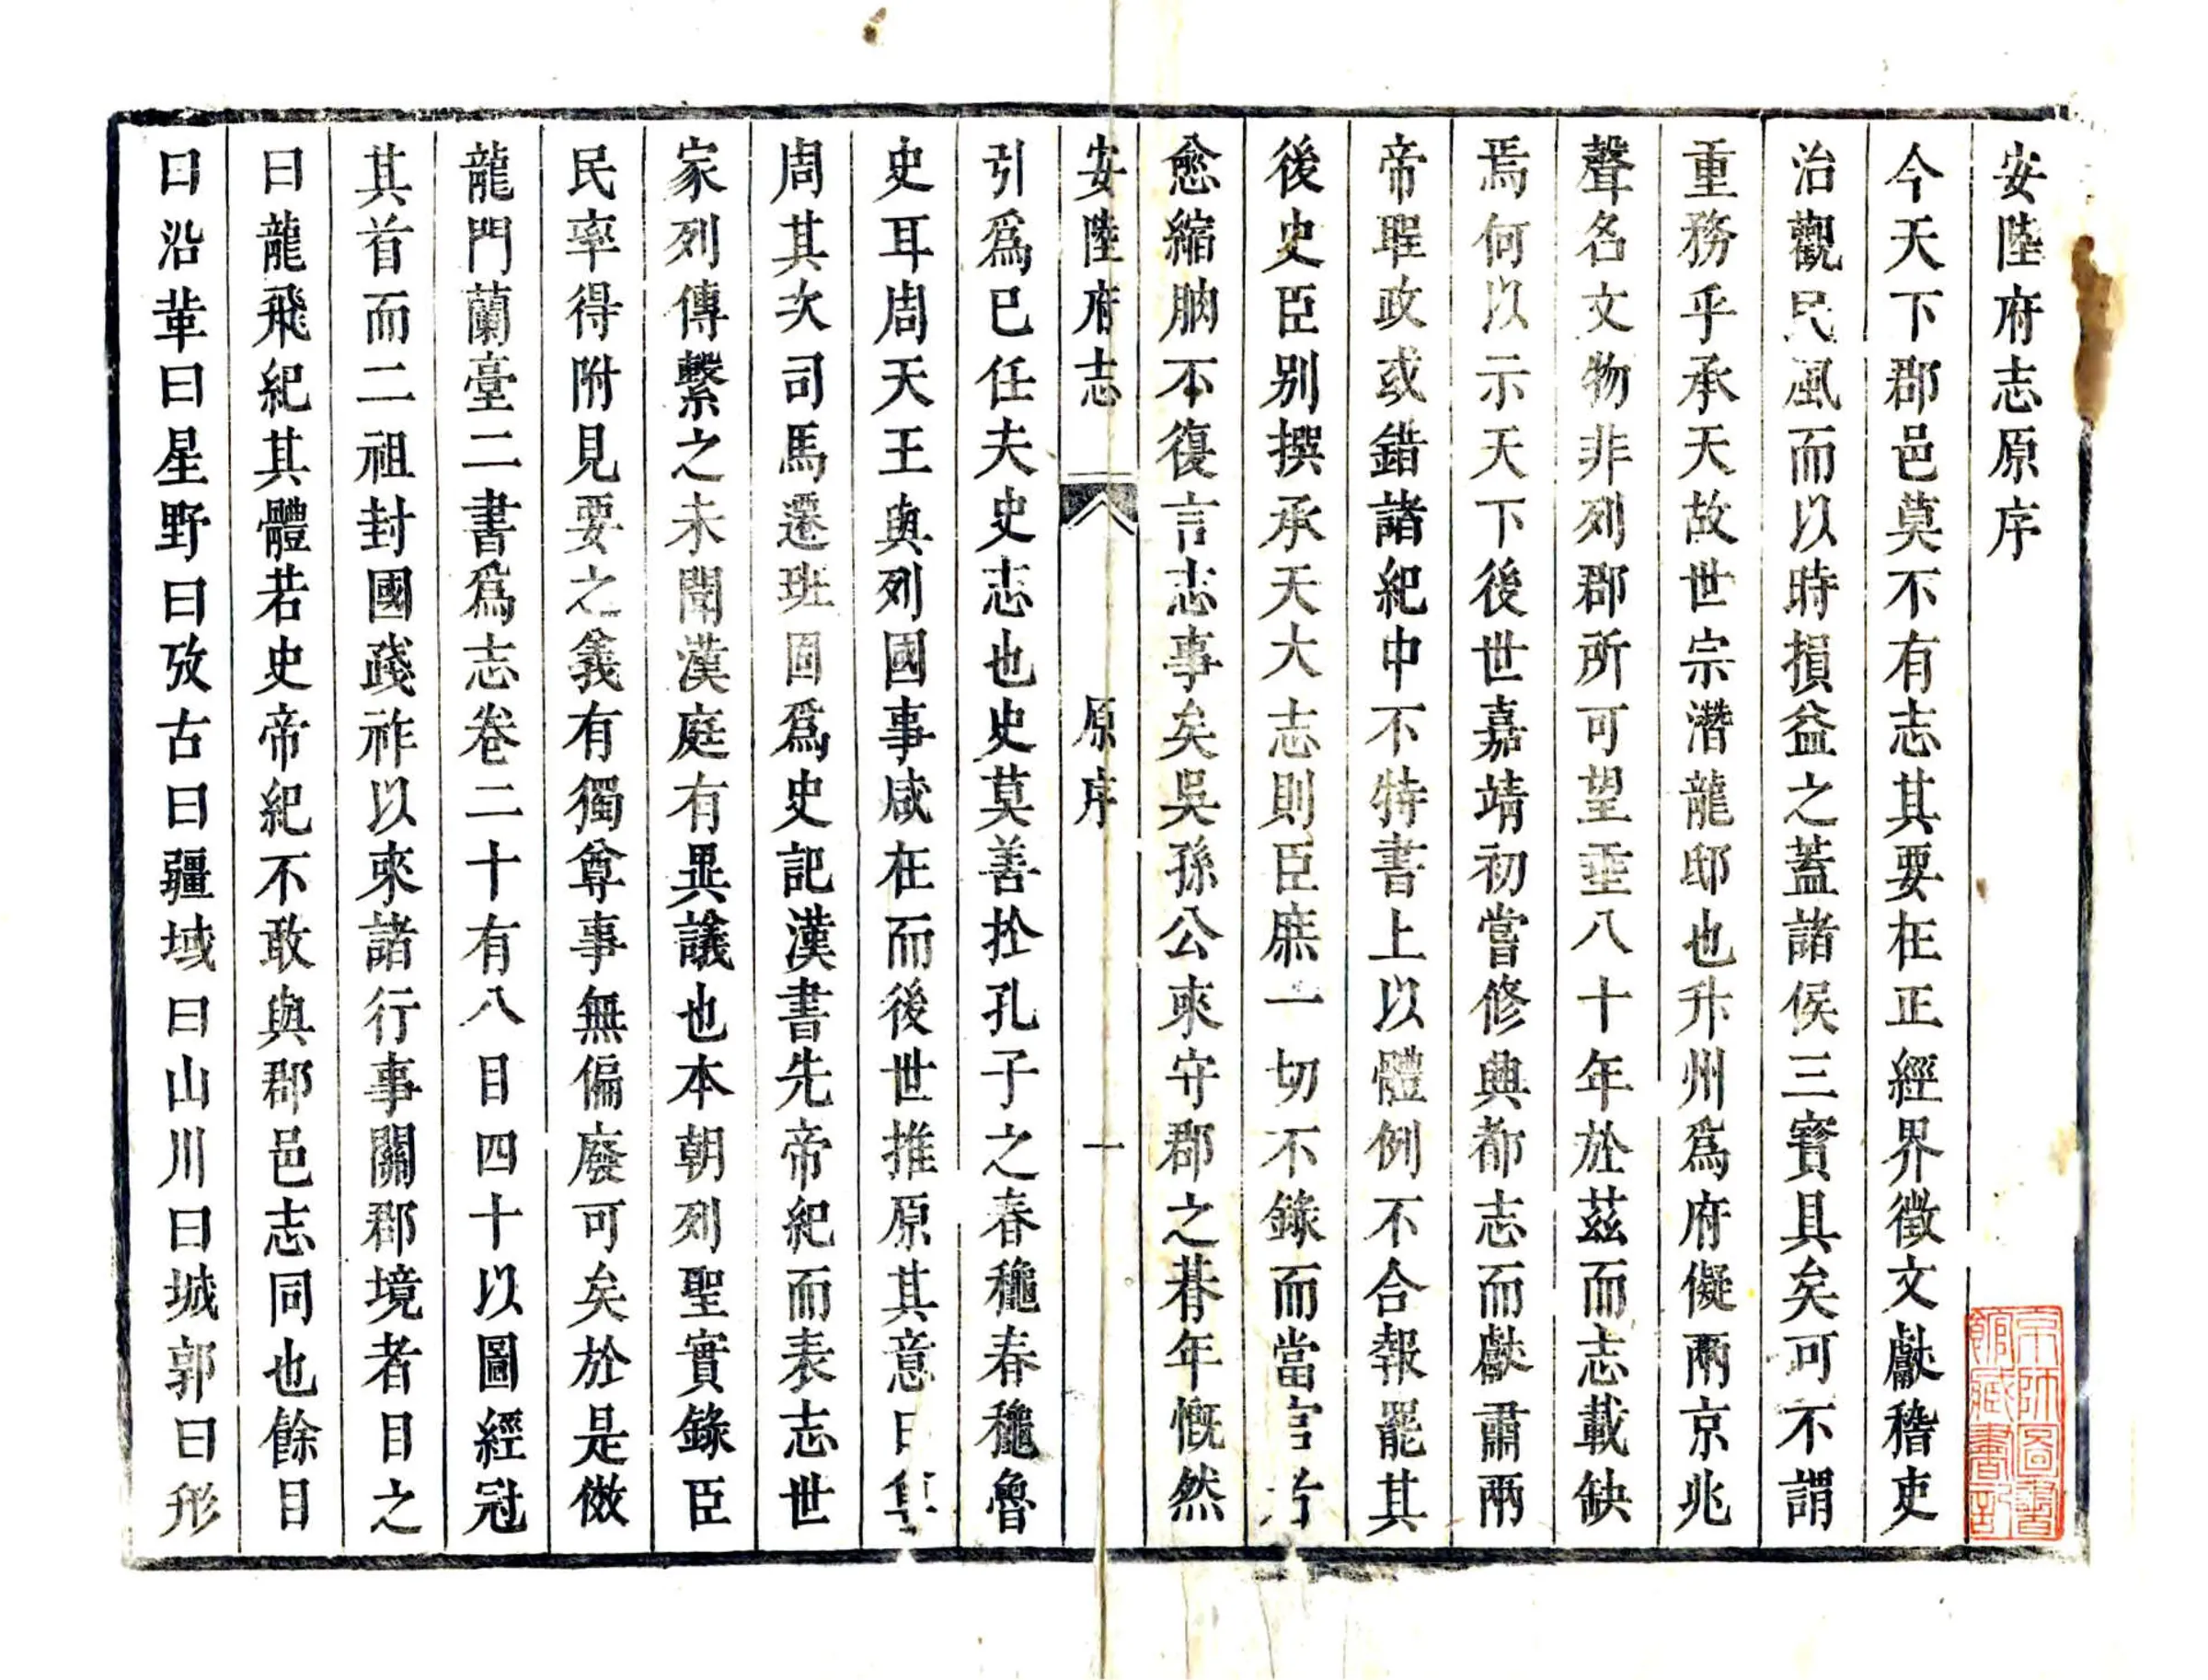 安陸府志原序
今天下郡邑莫不有志其要在正經界徵文獻稽吏
治觀民風而以時損益之蓋諸侯三寶具矣可不謂
重務乎承天故世宗潛龍邸也升州爲府儗兩京兆
聲名文物非列郡所可望垂八十年於茲而志載缺
焉何以示天下後世嘉靖初嘗修興都志而獻肅兩
帝聖政或錯諸紀中不特書上以體例不合報罷其
後史臣别撰承天大志則臣庶一切不錄而當官者
愈縮朒不復言志事矣吳孫公來守郡之朞年慨然
安陸府志 原序 一
引爲已任夫史志也史莫善於孔子之春龝春龝魯
史耳周天王與列國事咸在而後世推原其意曰
周其次司馬遷班固爲史記漢書先帝紀而表志世
家列傳繫之未聞漢庭有異議也本朝列聖實錄臣
民率得附見要之義有獨尊事無偏廢可矣於是倣
龍門蘭臺二書爲志卷二十有八目四十以圖經冠
其首而二祖封國踐祚以來諸行事關郡境者目之
曰龍飛紀其體若史帝紀不敢與郡邑志同也餘目
曰沿革曰星野曰攷古曰疆域曰山川曰城郭曰形
京師圖書
館藏書記